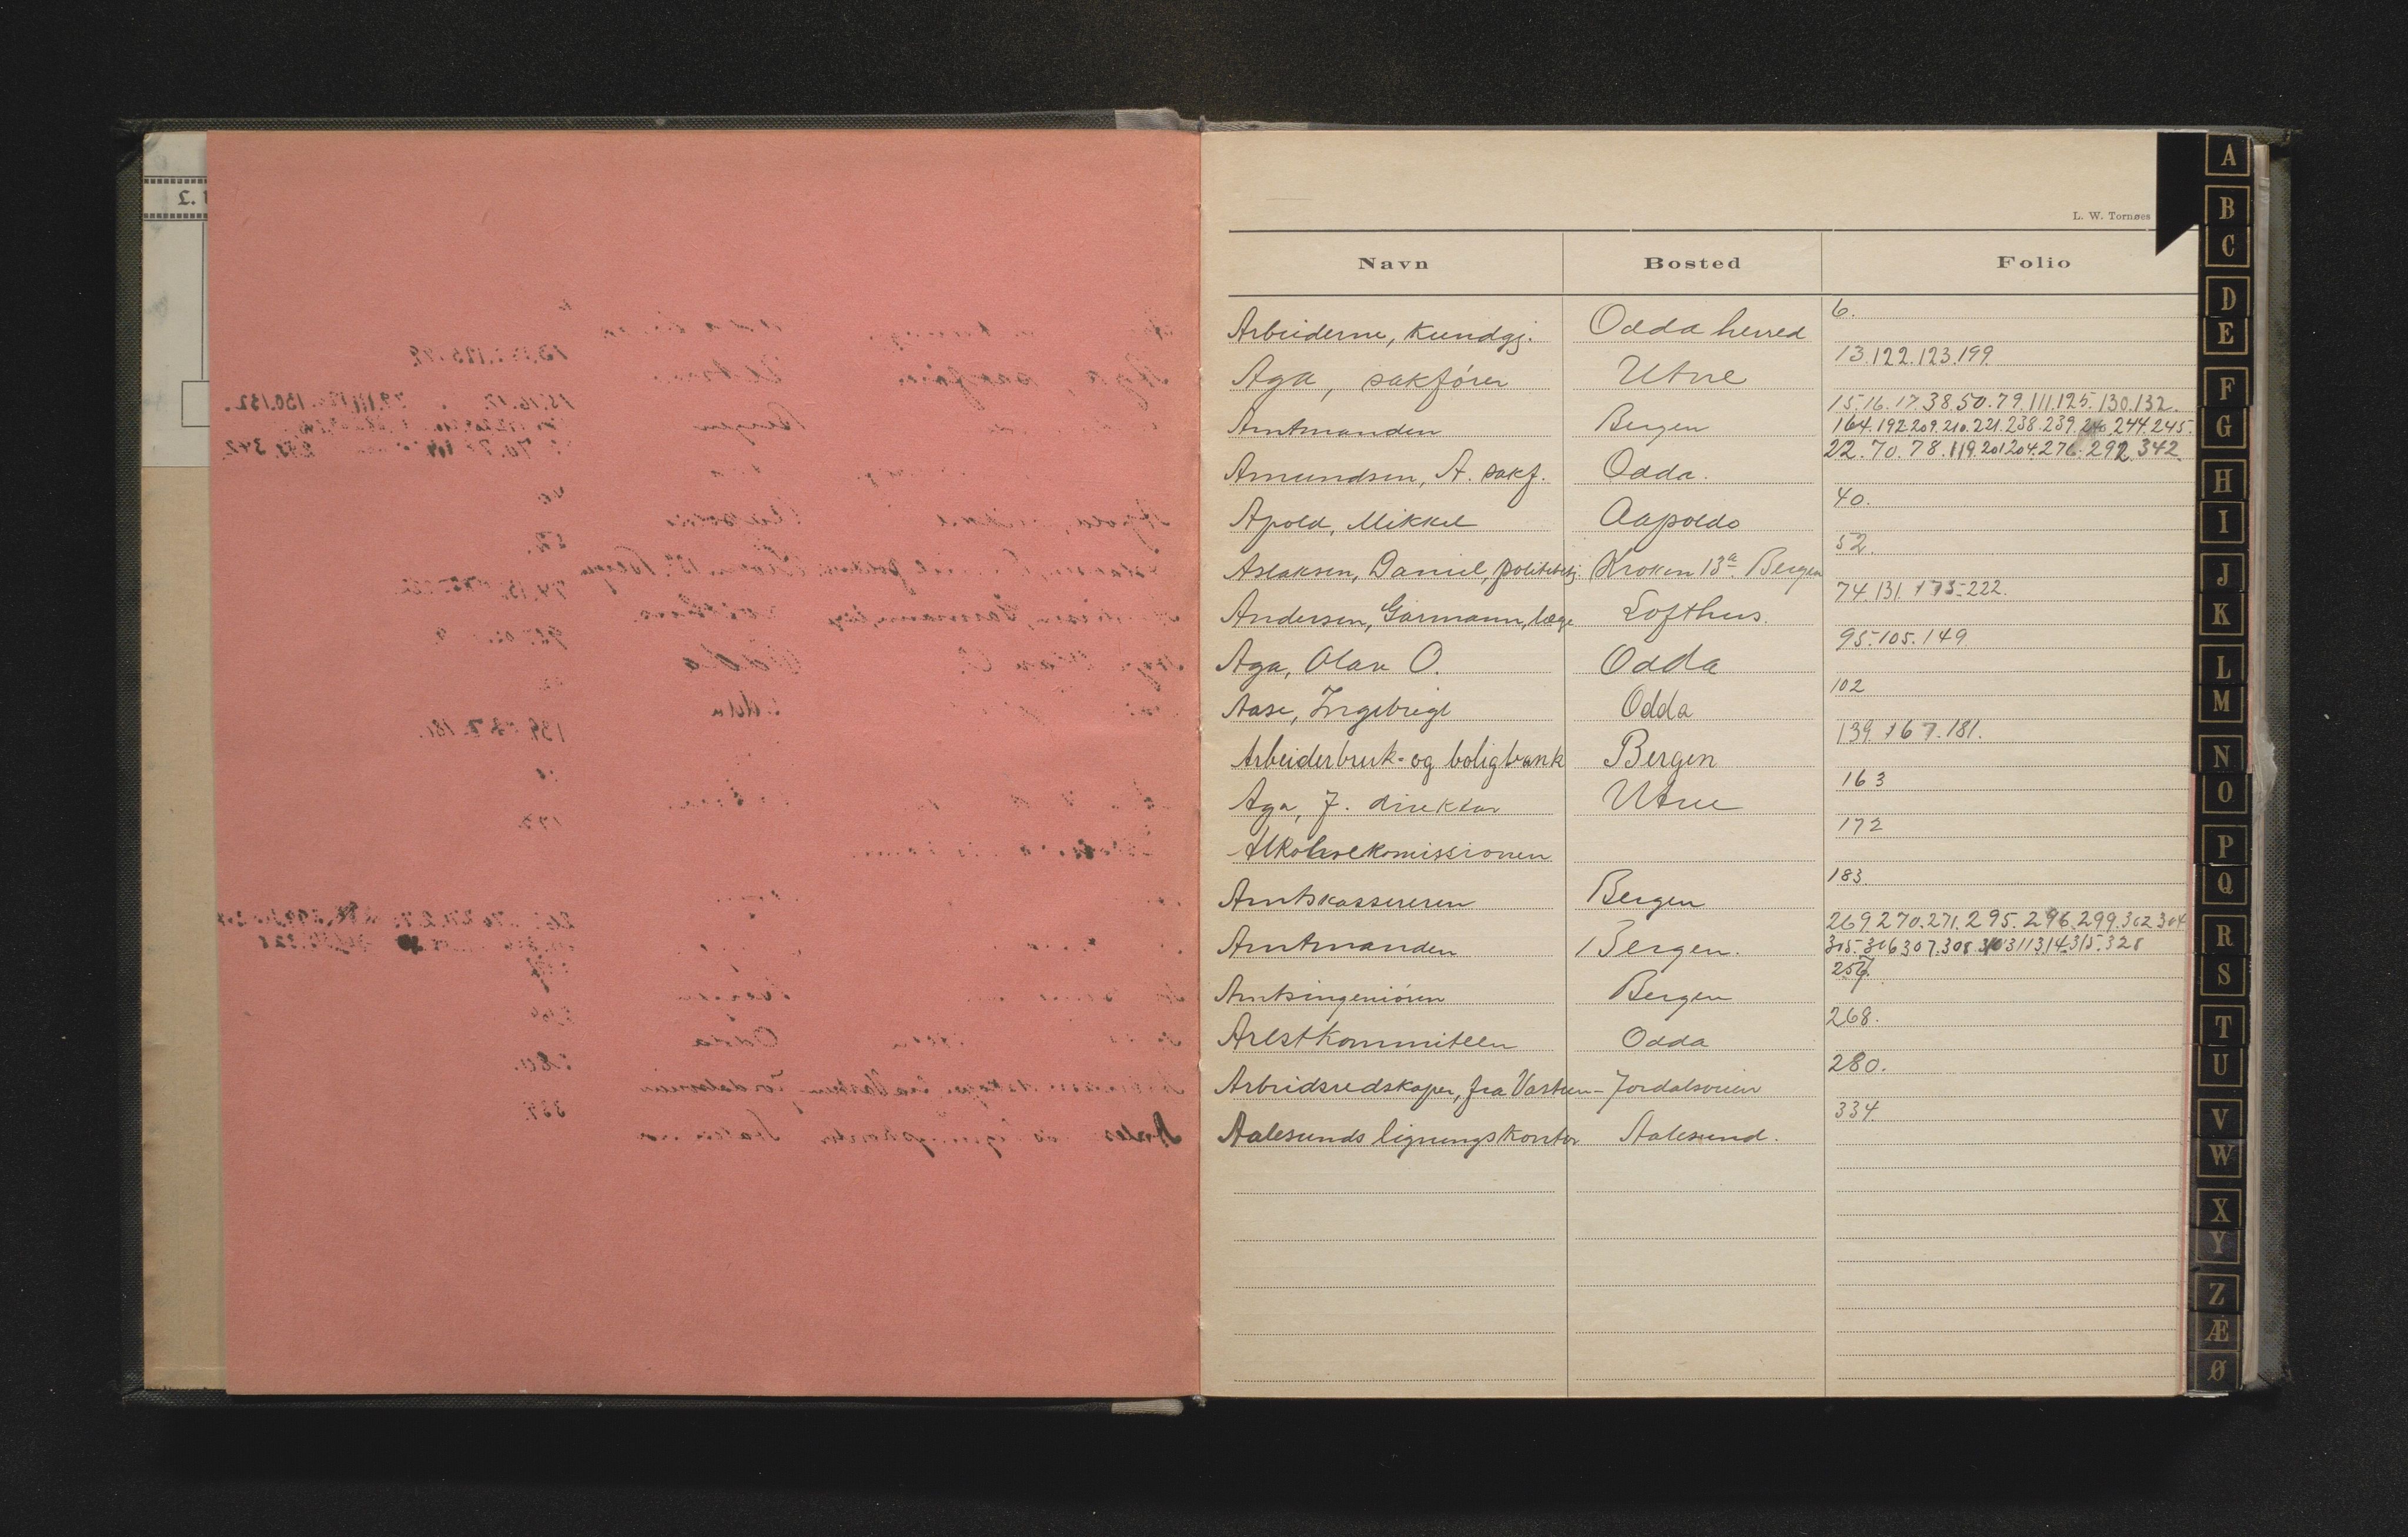 L. W. Tornøes
Navn Bosted Folio
Arbeiderne, kundgj. Odda herred 6.
Aga, sakfører Utne 13.122.123.199.
Amtmanden Bergen 15.16.17.38.50.79.111.125.130.132.
164.192.209.210.221.238.239.240.244.245.
Amundsen, A. sakf. Odda. 22.70.78.119.201.204.276.292.342.
Apold, Mikkel Aapoldo 40.
Aslaksen, Daniel, politibetj. Kroken 13a. Bergen 52.
Andersen, Garmann, læge Lofthus. 74.131.175.222.
Aga, Olav O. Odda 95.105.149.
Aase, Ingebrigt Odda 102
Arbeiderbruk- og boligbank Bergen 139.167.181.
Aga, J. direktør Utne 163
Alkoholkomissionen 172
Amtskassereren Bergen 183.
Amtmanden Bergen. 269.270.271.295.296.299.302.304
305.306.307.308.310.311.314.315.328
Amtsingeniøren Bergen 257.
Arestkommiteen Odda 268.
Arbeidsredskaper, fra Vastun-Jordalsveien 280.
Aalesunds ligningskontor Aalesund. 334.
A
B
C
D
E
F
G
H
I
J
K
L
M
N
O
P
Q
R
S
T
U
V
W
X
Y
Z
Æ
Ø